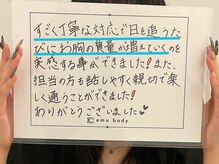 すごく丁寧な対応で日を追うた
びにお胸の質量が増えていくのを
実感する事ができました！また、
担当の方も話しやすく親切で楽
しく通うことができました！
ありがとうございました
amu body